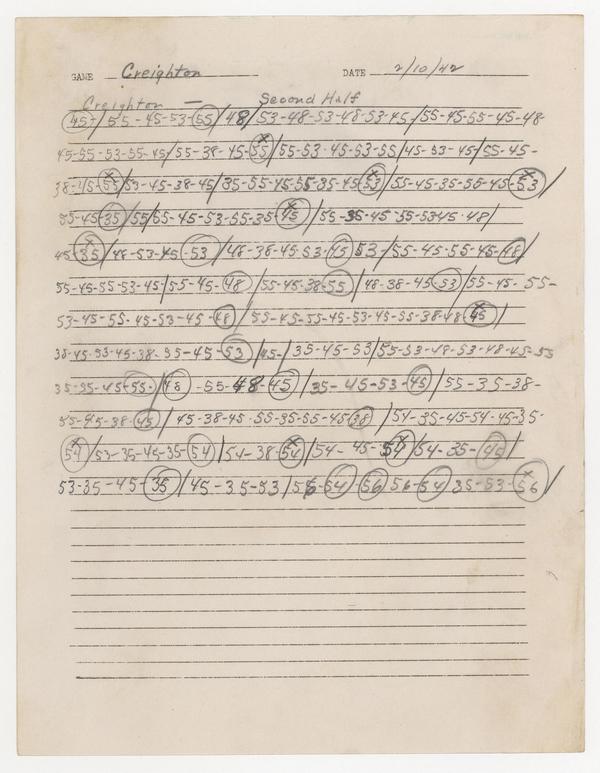 GAME Creighton DATE 2/10/42
Creighton — Second Half
45-/55-45-53-55/48/53-48-53-48-53-45-/55-45-55-45-48-
45-55-53-55-45/55-38-45-55/55-53-45-53-55/45-53-45/55-45-
38-45-55/53-45-38-45/35-55-45-55-35-45-53/55-45-35-55-45-53/
55-45-35/55/55-45-53-55-35-45/55-35-45-55-5345-48/
45-35/48-53-45-53-/48-38-45-53-45/53-/55-45-55-45-48/
55-45-55-53-45/55-45-48/55-45-38-55/48-38-45-53/55-45-55-
53-45-55-45-53-45-48/55-45-55-45-53-45-55-38-48-45/
38-45-53-45-38-35-45-53/45-/35-45-53/55-53-48-53-48-45-55
35-35-45-55-/48-55-48-45/35-45-53-45/55-35-38-
55-45-38-45/45-38-45-55-35-55-45-38/54-35-45-54-45-35-
54/53-35-45-35-54/54-38-54/54-45-54/54-35-45/
53-35-45-35/45-35-53/56-54-56-56-54-35-53-56/